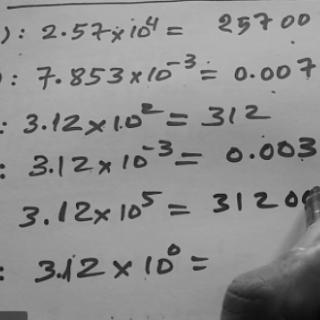 ): 2.57×10⁴ = 25700
: 7.853×10⁻³ = 0.007
: 3.12×10² = 312
: 3.12×10⁻³ = 0.003
3.12×10⁵ = 3120
: 3.12×10⁰ =